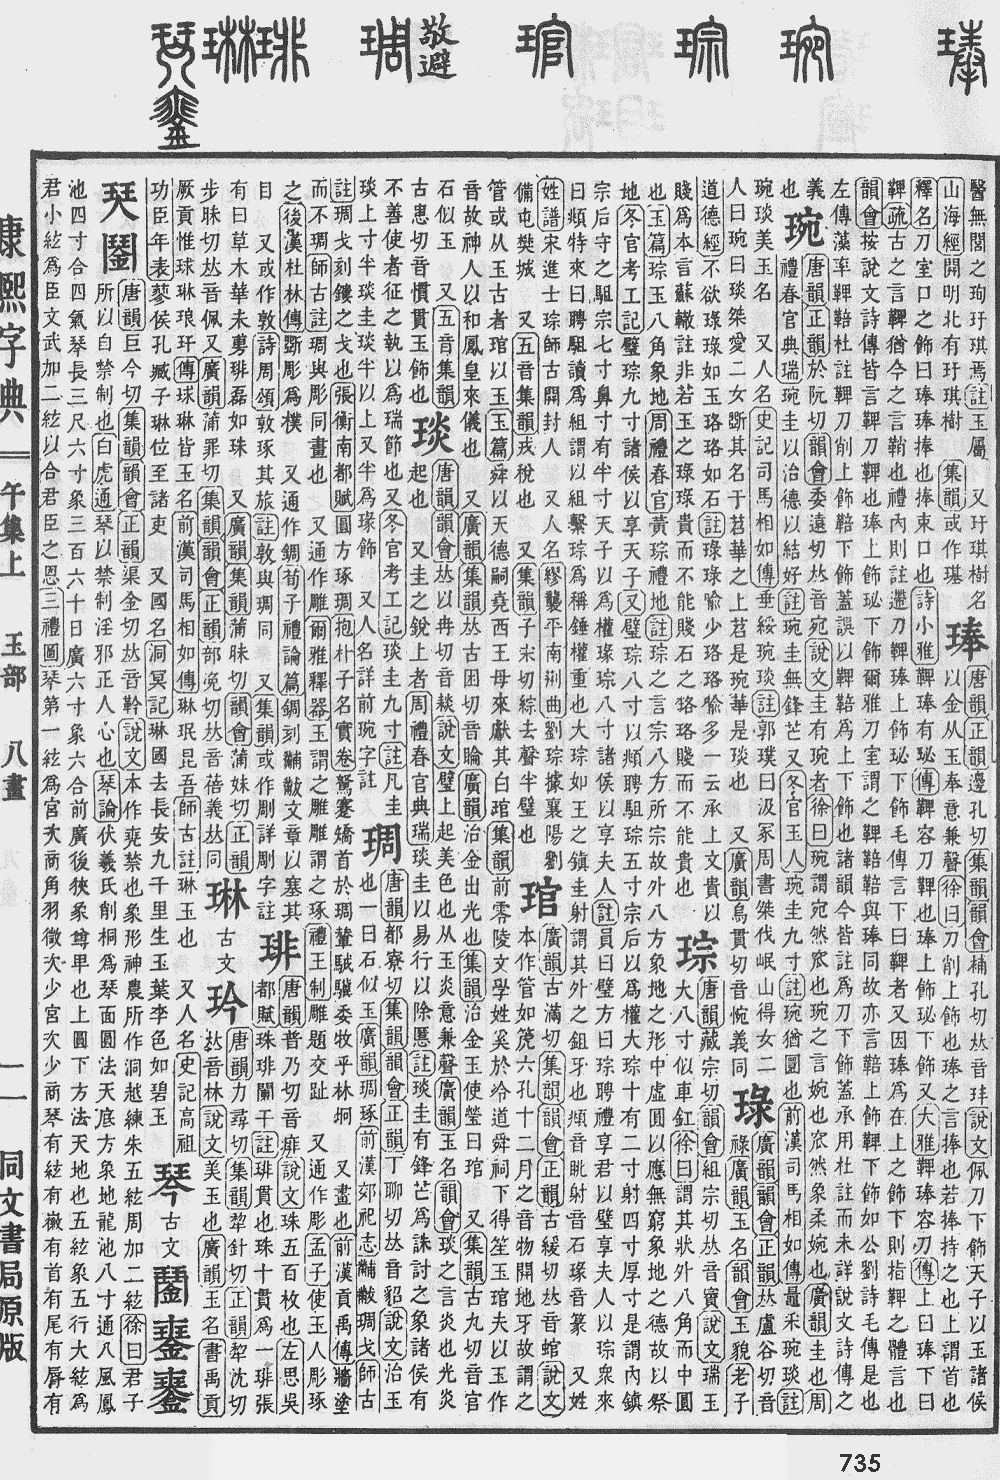 琫
琬
琮
琯
敬避
琱
琲
琳
琴
醫無閭之珣玗琪焉註玉屬 又玗琪樹名 琫 唐韻正韻邊孔切集韻韻會補孔切𠀤音㧍說文佩刀下飾天子以玉諸侯
山海經開明北有玗琪樹 集韻或作璂 以金从玉奉意兼聲徐曰刀削上飾也琫之言捧也若捧持之也上謂首也
釋名刀室口之飾曰琫琫捧也捧束口也詩小雅鞞琫有珌傳鞞容刀鞞也琫上飾珌下飾又大雅鞞琫容刀傳上曰琫下曰
鞞疏古之言鞞猶今之言鞘也禮內則註遰刀鞞琫上飾珌下飾毛傳言下曰鞞者又因琫爲在上之飾下則指鞞之體言也
韻會按說文詩傳皆言鞞刀鞞也琫上飾珌下飾爾雅刀室謂之鞞鞛鞛與琫同故亦言鞛上飾鞞下飾如公劉詩毛傳是也
左傳藻率鞞鞛杜註鞞刀削上飾鞛下飾蓋誤以鞞鞛爲上下飾也諸韻今皆註爲刀下飾蓋承用杜註而未詳說文詩傳之
義 琬 唐韻正韻於阮切韻會委遠切𠀤音宛說文圭有琬者徐曰琬謂宛然窊也琬之言婉也窊然象柔婉也廣韻圭也周
也 禮春官典瑞琬圭以治德以結好註琬圭無鋒芒又冬官玉人琬圭九寸註琬猶圜也前漢司馬相如傳鼂采琬琰註
琬琰美玉名 又人名史記司馬相如傳垂綏琬琰註郭璞曰汲冢周書桀伐岷山得女二 琭 廣韻韻會正韻𠀤盧谷切音
人曰琬曰琰桀愛二女斲其名于苕華之上苕是琬華是琰也 又廣韻烏貫切音惋義同 祿廣韻玉名韻會玉貌老子
道德經不欲琭琭如玉珞珞如石註琭琭喻少珞珞喻多一云承上文貴以 琮 唐韻藏宗切韻會組宗切𠀤音賨說文瑞玉
賤爲本言蘇轍註非若玉之琭琭貴而不能賤石之珞珞賤而不能貴也 大八寸似車釭徐曰謂其狀外八角而中圓
也玉篇琮玉八角象地周禮春官黃琮禮地註琮之言宗八方所宗故外八方象地之形中虛圓以應無窮象地之德故以祭
地冬官考工記璧琮九寸諸侯以享天子又璧琮八寸以頫聘駔琮五寸宗后以爲權大琮十有二寸射四寸厚寸是謂內鎮
宗后守之駔琮七寸鼻寸有半寸天子以爲權瑑琮八寸諸侯以享夫人註員曰璧方曰琮聘禮享君以璧享夫人以琮眾來
曰頫特來曰聘駔讀爲組謂以組繫琮爲稱錘權重也大琮如王之鎮圭射謂其外之鉏牙也頫音眺射音石瑑音篆 又姓
姓譜宋進士琮師古開封人 又人名繆襲平南荆曲劉琮據襄陽劉 琯 廣韻古滿切集韻韻會正韻古緩切𠀤音管說文
備屯樊城 又五音集韻戎稅也 又集韻子宋切綜去聲半璧也 本作管如篪六孔十二月之音物開地牙故謂之
管或从玉古者琯以玉玉篇舜以天德嗣堯西王母來獻其白琯集韻前零陵文學姓奚於泠道舜祠下得笙玉琯夫以玉作
音故神人以和鳳皇來儀也 又廣韻集韻𠀤古困切音睔廣韻治金出光也集韻治金玉使瑩曰琯 又集韻古丸切音官
石似玉 又五音集韻 琰 唐韻韻會𠀤以冉切音錟說文璧上起美色也从玉炎意兼聲廣韻玉名韻會琰之言炎也光炎
古患切音慣貫玉飾也 起也 又圭之銳上者周禮春官典瑞琰圭以易行以除慝註琰圭有鋒芒爲誅討之象諸侯有
不善使者征之執以爲瑞節也又冬官考工記琰圭九寸註凡圭 琱 唐韻都寮切集韻韻會正韻丁聊切𠀤音貂說文治玉
琰上寸半琰圭琰半以上又半爲瑑飾 又人名詳前琬字註 也一曰石似玉廣韻琱琢前漢郊祀志黼黻琱戈師古
註琱戈刻鏤之戈也張衡南都賦圓方琢琱抱朴子名實卷駑蹇矯首於琱輦駃騠委牧乎林坰 又畫也前漢貢禹傳牆塗
而不琱師古註琱與彫同畫也 又通作雕爾雅釋器玉謂之雕雕謂之琢禮王制雕題交趾 又通作彫孟子使玉人彫琢
之後漢杜林傳斲彫爲樸 又通作錭荀子禮論篇錭刻黼黻文章以塞其 琲 唐韻普乃切音痱說文珠五百枚也左思吳
目 又或作敦詩周頌敦琢其旅註敦與琱同 又集韻或作剮詳剮字註 都賦珠琲闌干註琲貫也珠十貫爲一琲張
有曰草木華未旉琲磊如珠 又廣韻集韻蒲昧切韻會蒲妹切正韻 琳 古文 玪 唐韻力尋切集韻犂針切正韻犂沈切
步昧切𠀤音佩又廣韻蒲罪切集韻韻會正韻部浼切𠀤音蓓義𠀤同 𠀤音林說文美玉也廣韻玉名書禹貢
厥貢惟球琳琅玕傳球琳皆玉名前漢司馬相如傳琳珉昆吾師古註琳玉也 又人名史記高祖
功臣年表蓼侯孔臧子琳位至諸吏 又國名洞冥記琳國去長安九千里生玉葉李色如碧玉 琴 古文
珡 唐韻巨今切集韻韻會正韻渠金切𠀤音黔說文本作珡禁也象形神農所作洞越練朱五絃周加二絃徐曰君子
所以自禁制也白虎通琴以禁制淫邪正人心也琴論伏羲氏削桐爲琴面圓法天底方象地龍池八寸通八風鳳
池四寸合四氣琴長三尺六寸象三百六十日廣六寸象六合前廣後狹象尊卑也上圓下方法天地也五絃象五行大絃爲
君小絃爲臣文武加二絃以合君臣之恩三禮圖琴第一絃爲宮次商角羽徵次少宮次少商琴有絃有徽有首有尾有脣有
康熙字典
午集上 玉部 八畫
一一
同文書局原版
735